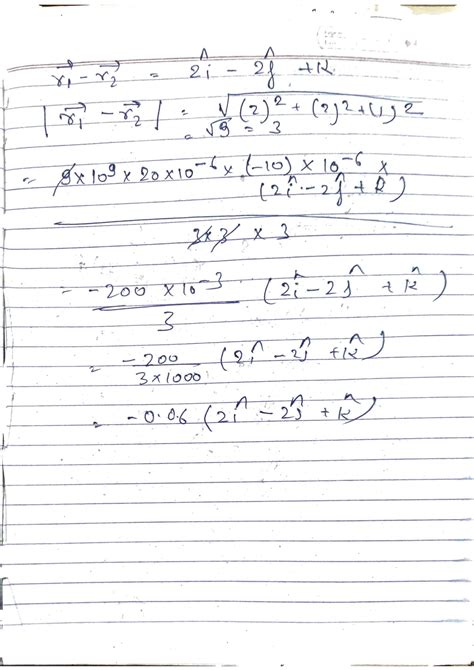 r₁⃗ − r₂⃗ = 2î − 2ĵ + k
| r₁⃗ − r₂⃗ | = √(2)² + (2)² + (1)²
= √9 = 3
= 9×10⁹ × 20×10⁻⁶ × (−10) × 10⁻⁶ ×
(2î − 2ĵ + k̂)
3×3 × 3
= −200 × 10⁻³ / 3 (2î − 2ĵ + k̂)
= −200 / 3×1000 (2î − 2ĵ + k̂)
= −0.06 (2î − 2ĵ + k̂)